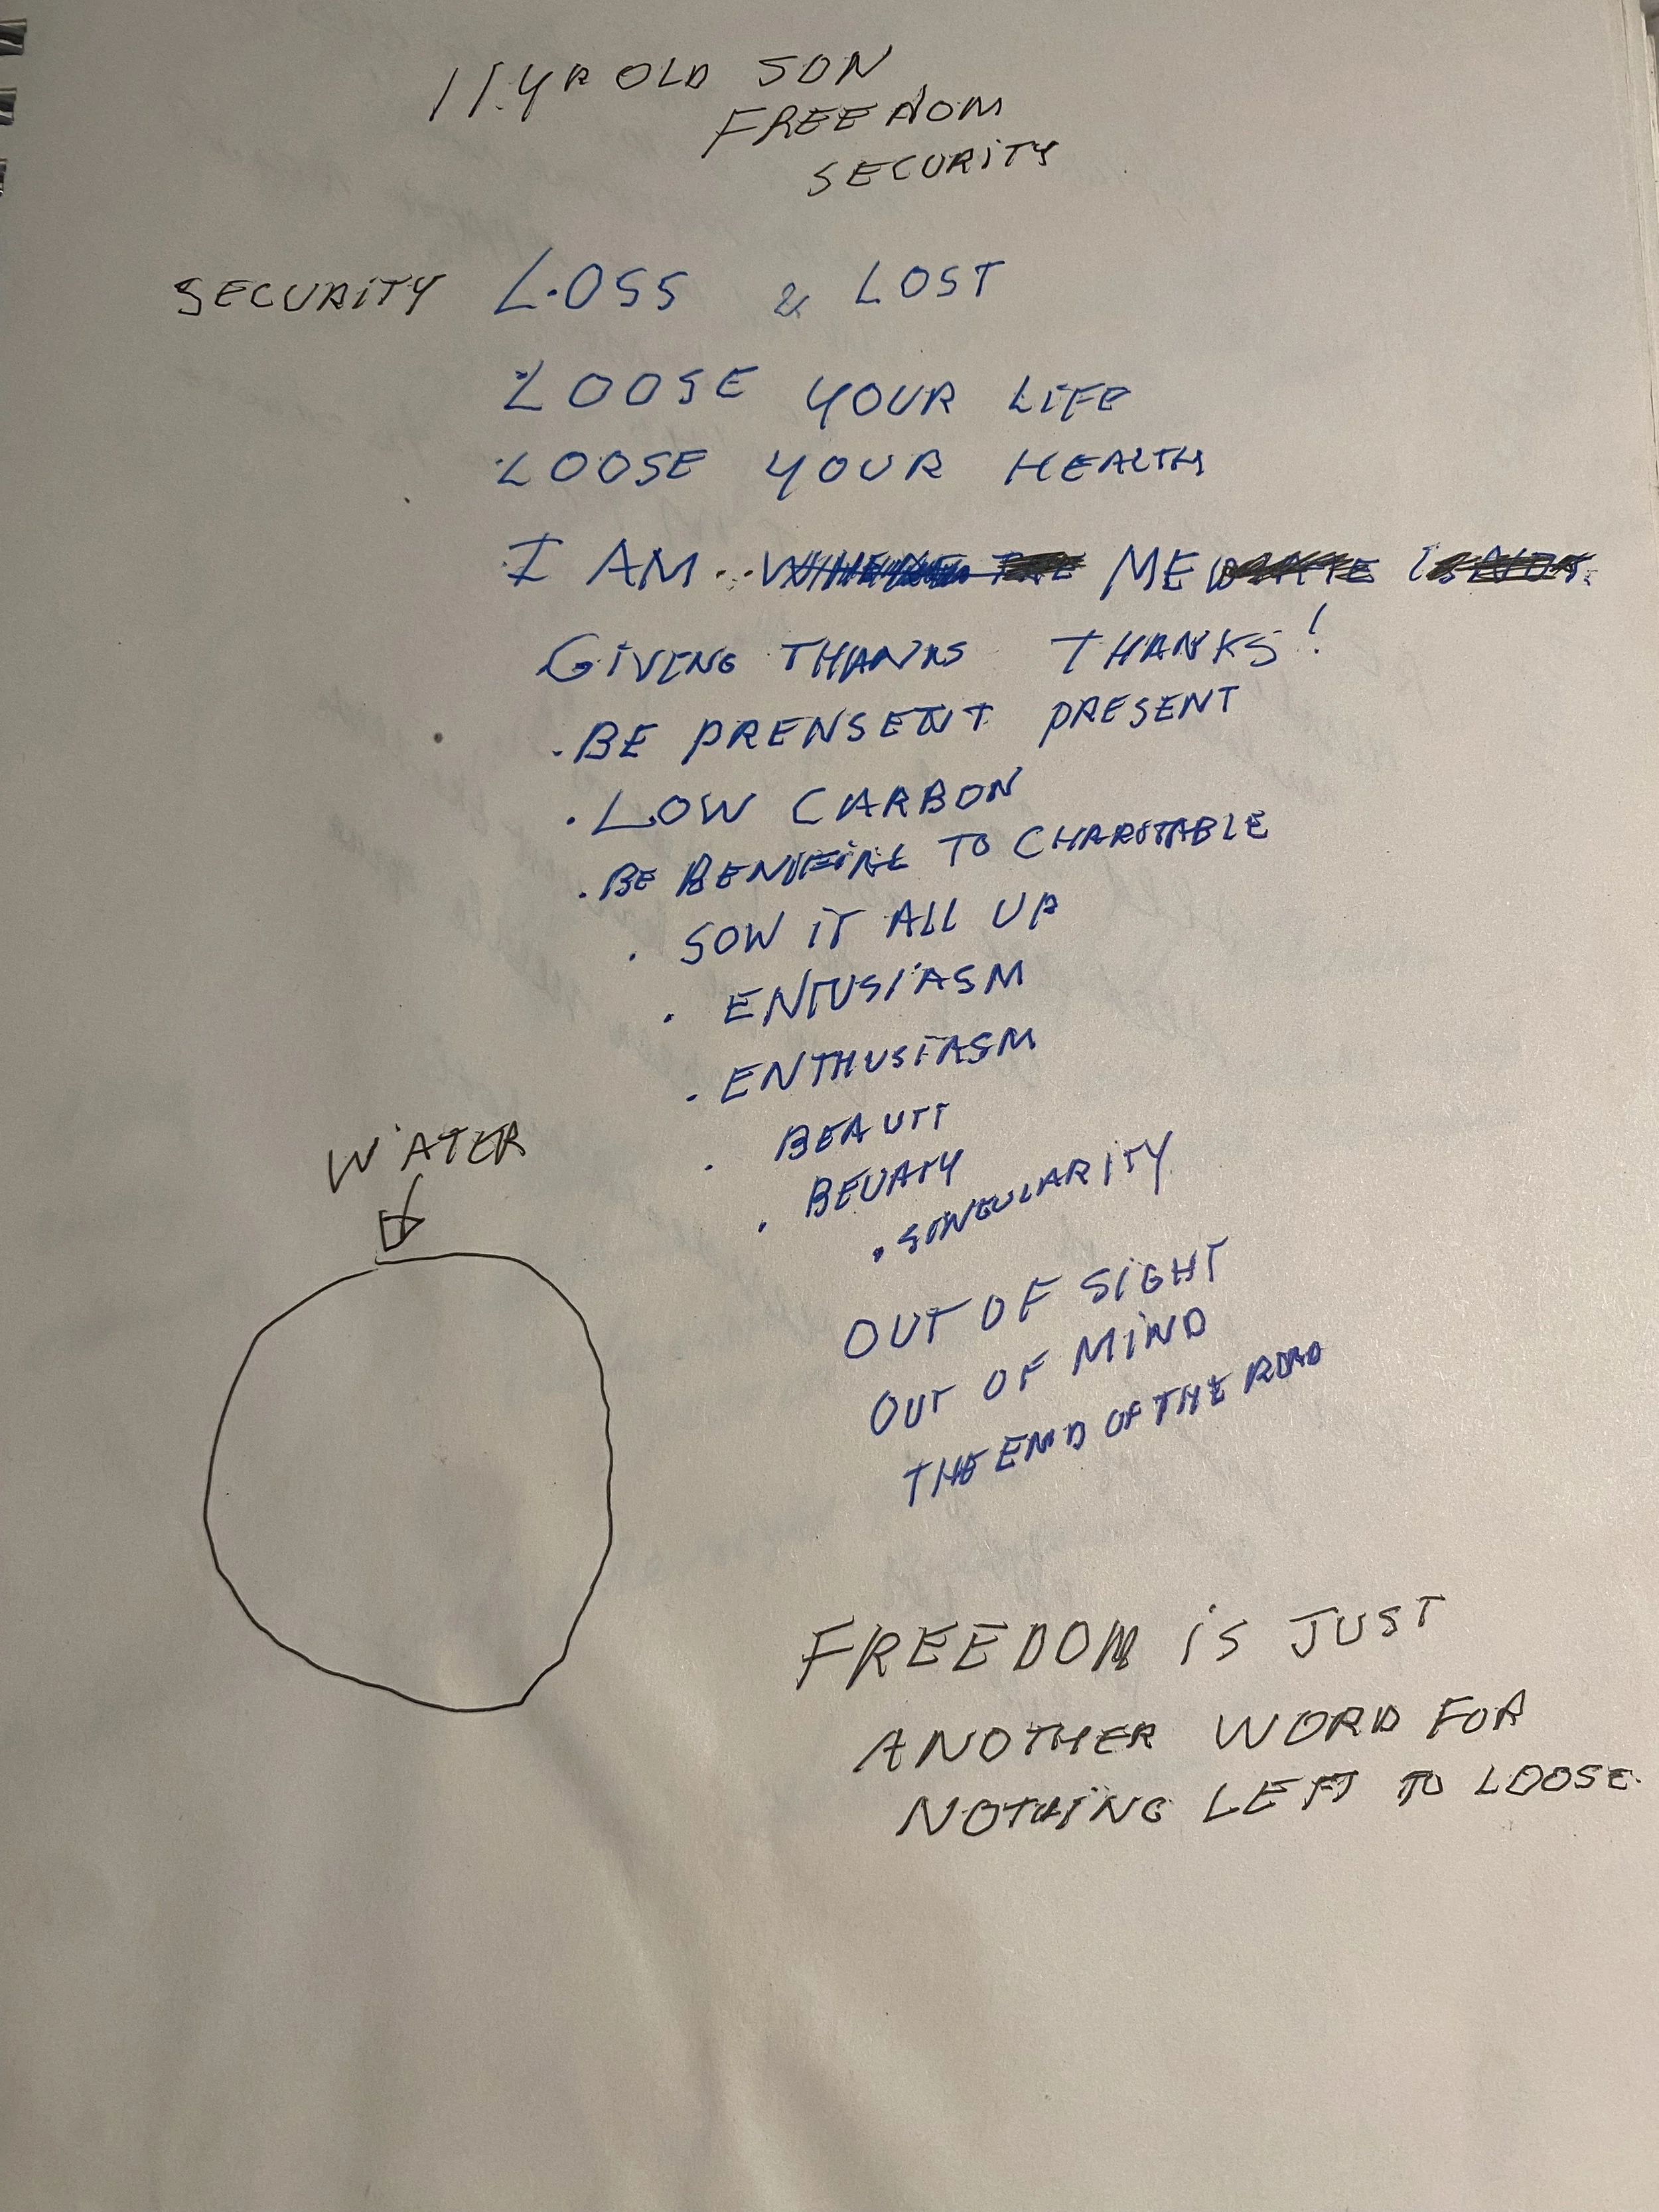 11 YR OLD SON
FREEDOM
SECURITY
SECURITY LOSS & LOST
LOOSE YOUR LIFE
LOOSE YOUR HEALTH
I AM.. ME
GIVING THANKS THANKS!
. BE PRENSENT PRESENT
. LOW CARBON
. BE TO CHARITABLE
. SOW IT ALL UP
. ENTUSIASM
. ENTHUSIASM
. BEAUTT
. BEUATY
. SINGULARITY
WATER
OUT OF SIGHT
OUT OF MIND
THE END OF THE ROAD
FREEDOM IS JUST
ANOTHER WORD FOR
NOTHING LEFT TO LOOSE.